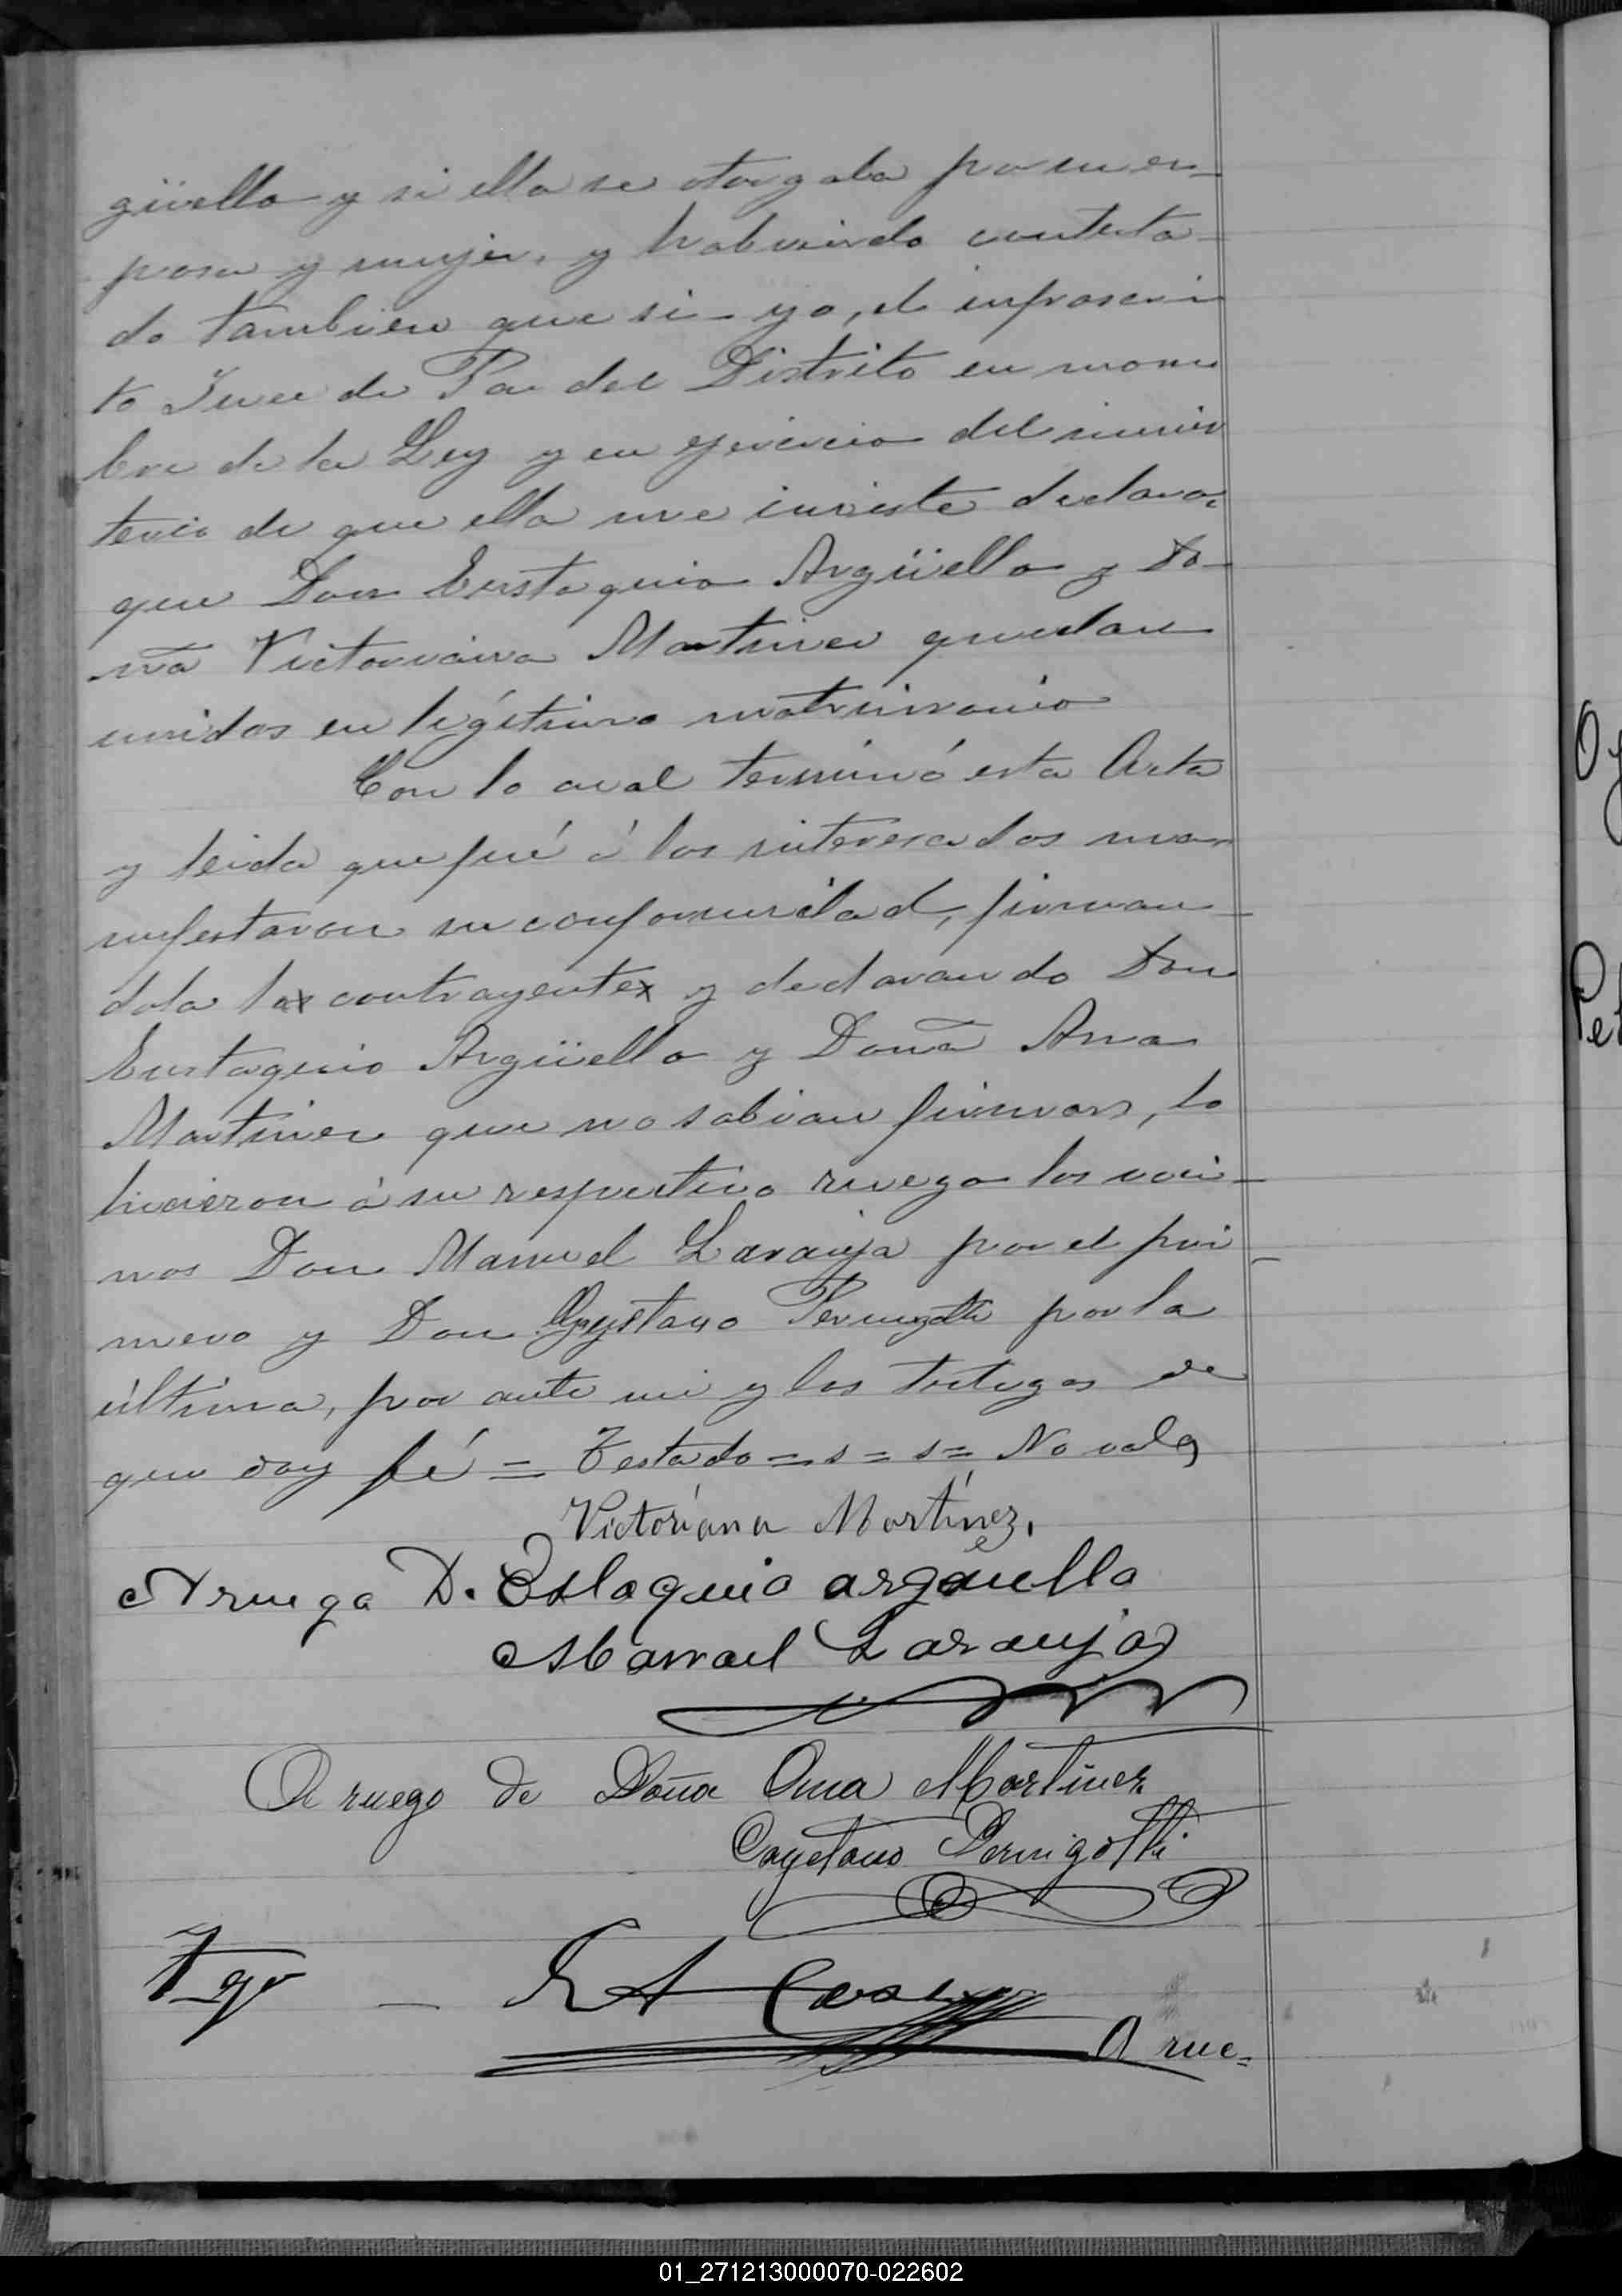 güello y si ella se otorgaba por su es-
posa y mujer, y habiendo contesta-
do tambien que si - yo, el infrascri
to Juez de Paz del Distrito en nom
bre de la Ley y en ejercicio del minis
terio de que ella me inviste declaro:
que Don Eustaquio Argüello y Do-
ña Victoriana Martinez quedan
unidos en legítimo matrimonio
Con lo cual terminó esta Acta
y leida que fué á los interesados ma-
nifestaron su conformidad, firman-
dola la contrayente y declarando Don
Eustaquio Argüello y Doña Ana
Martinez que no sabian firmar, lo
hicieron á su respectivo ruego los veci-
nos Don Manuel Laranja por el pri-
mero y Don Cayetano Pernigotti por la
última, por ante mi y los testigos de
que doy fé = Testado = s = s = No vale
Victoriana Martínez.
Aruega D. Estaquio arguello
Manuel Laranja
A ruego de Doña Ana Martinez
Cayetano Pernigotti
Tgo -
A rue=
Pe
01_271213000070-022602